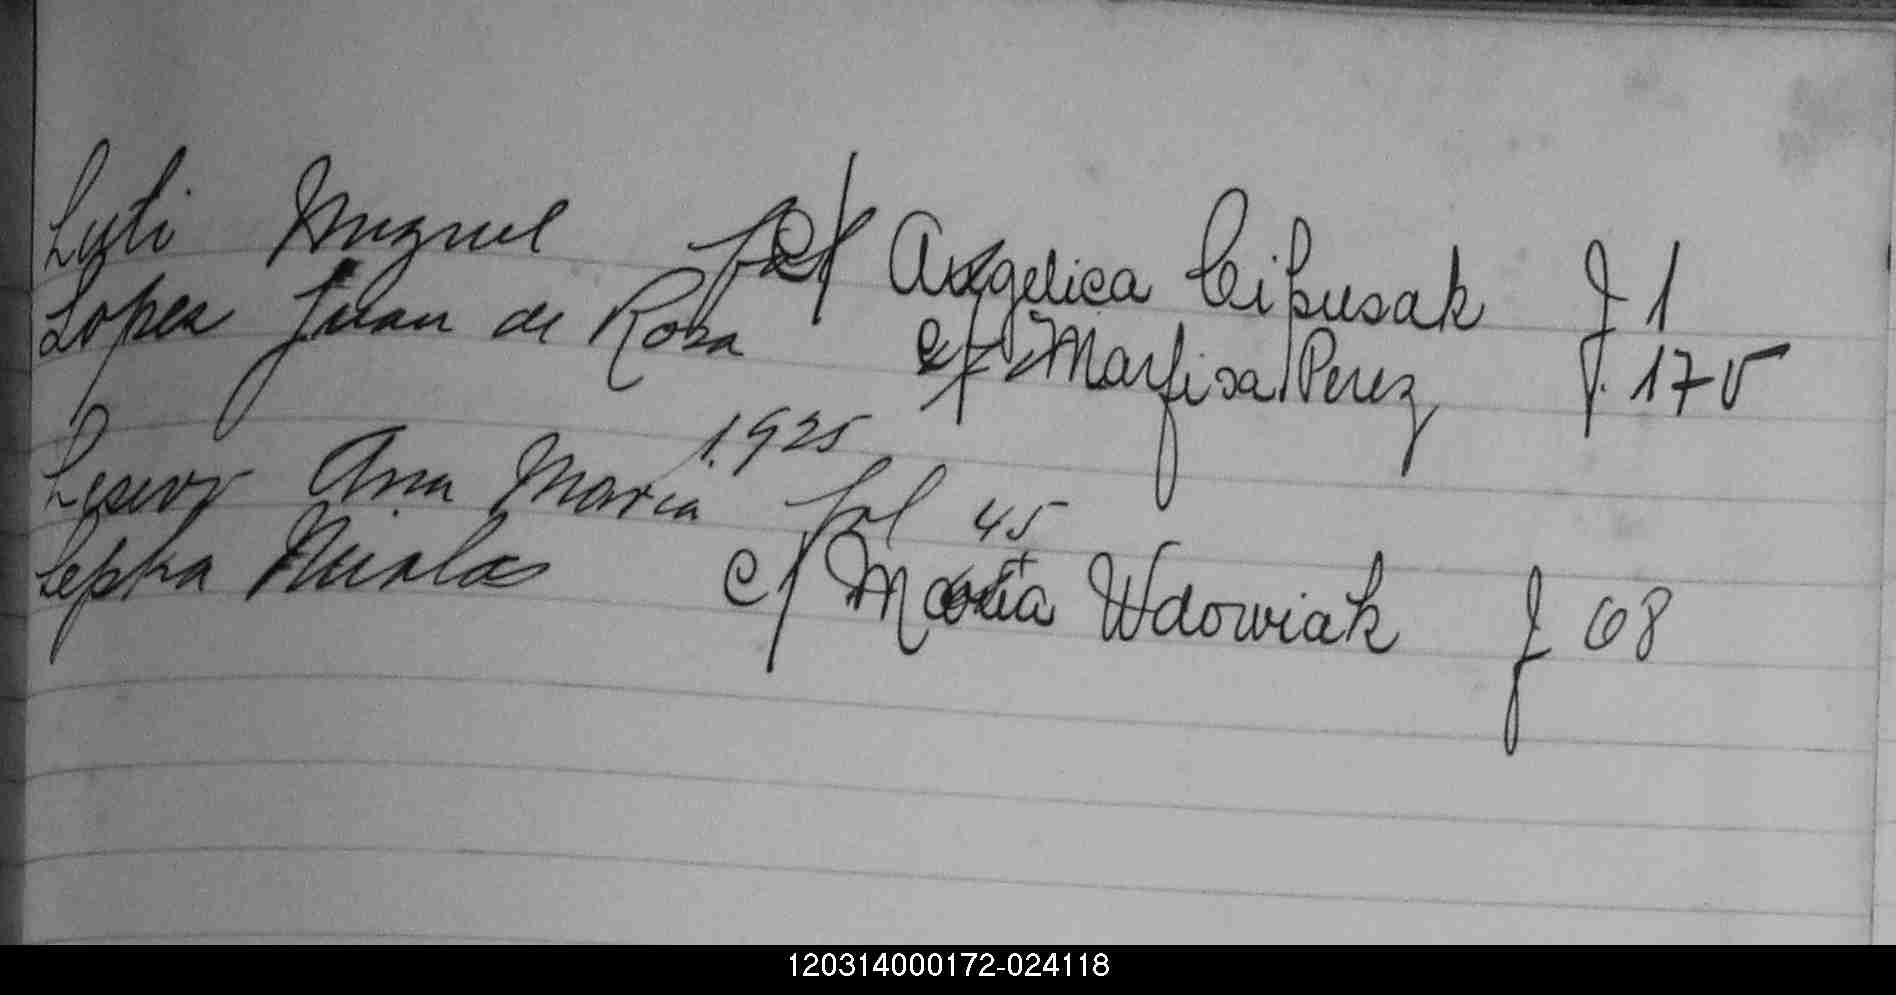 Luti Miguel c/ Angelica Cibusak f 1
Lopez Juan de Rosa c/ Marfisa Perez f. 17 v
1.925
Ana Maria fol 45
Lepka Nicolas c/ Maria Wdowiak f 68
120314000172-024118